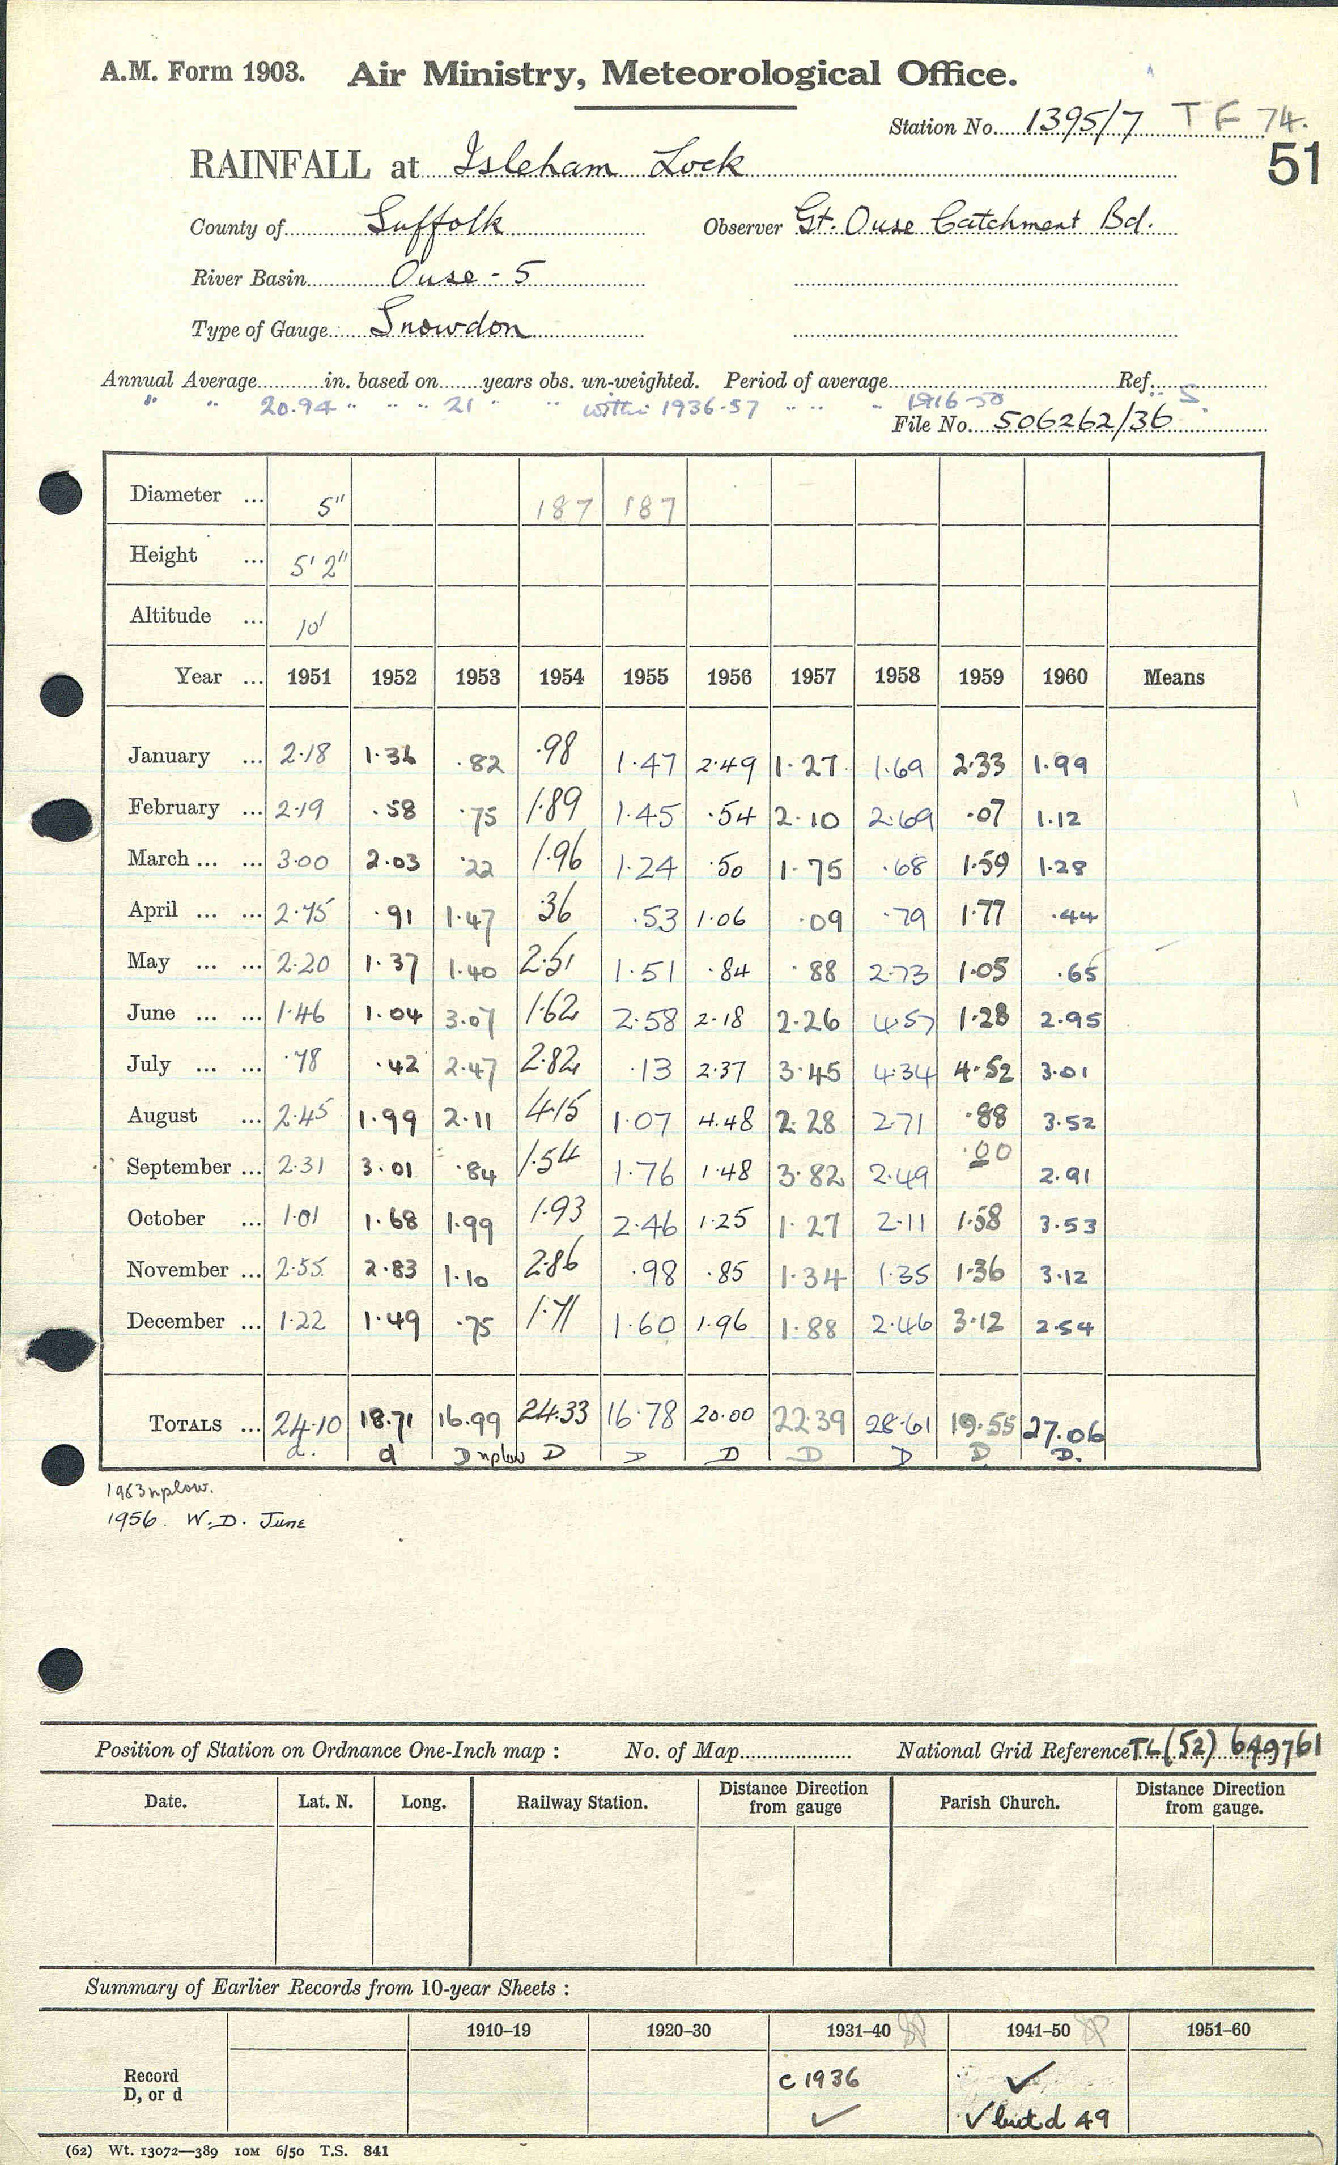 A.M. Form 1903. Air Ministry, Meteorological Office.
Station No. 1395/7 TF 74.
51
RAINFALL at Isleham Lock
County of Suffolk Observer Gt. Ouse Catchment Bd.
River Basin Ouse - 5
Type of Gauge Snowdon
Annual Average in. based on years obs. un-weighted. Period of average Ref.
" " 20.94 " " " 21 " " within 1936-57 " " " 1916-50 S.
File No. 506262/36
Diameter ... 5" 187 187
Height ... 5' 2"
Altitude ... 10'
Year ... 1951 1952 1953 1954 1955 1956 1957 1958 1959 1960 Means
January ... 2.18 1.36 .82 .98 1.47 2.49 1.27 1.69 2.33 1.99
February ... 2.19 .58 .75 1.89 1.45 .54 2.10 2.69 .07 1.12
March ... ... 3.00 2.03 .22 1.96 1.24 .50 1.75 .68 1.59 1.28
April ... ... 2.75 .91 1.47 .36 .53 1.06 .09 .79 1.77 .44
May ... ... 2.20 1.37 1.40 2.51 1.51 .84 .88 2.73 1.05 .65
June ... ... 1.46 1.04 3.07 1.62 2.58 2.18 2.26 4.57 1.28 2.95
July ... ... .78 .42 2.47 2.82 .13 2.37 3.45 4.34 4.52 3.01
August ... 2.45 1.99 2.11 4.15 1.07 4.48 2.28 2.71 .88 3.52
September ... 2.31 3.01 .84 1.54 1.76 1.48 3.82 2.49 .00 2.91
October ... 1.01 1.68 1.99 1.93 2.46 1.25 1.27 2.11 1.58 3.53
November ... 2.55 2.83 1.10 2.86 .98 .85 1.34 1.35 1.36 3.12
December ... 1.22 1.49 .75 1.71 1.60 1.96 1.88 2.46 3.12 2.54
TOTALS ... 24.10 18.71 16.99 24.33 16.78 20.00 22.39 28.61 19.55 27.06
d. d D nplow D D D D D D. D.
1953 nplow.
1956. W.D. June
Position of Station on Ordnance One-Inch map : No. of Map National Grid Reference TL(52) 649761
Date. Lat. N. Long. Railway Station. Distance from gauge Direction Parish Church. Distance from gauge. Direction
Summary of Earlier Records from 10-year Sheets :
1910–19 1920–30 1931–40 1941–50 1951–60
Record D, or d c 1936 ✓ ✓
✓ but d 49
(62) Wt. 13072—389 10M 6/50 T.S. 841